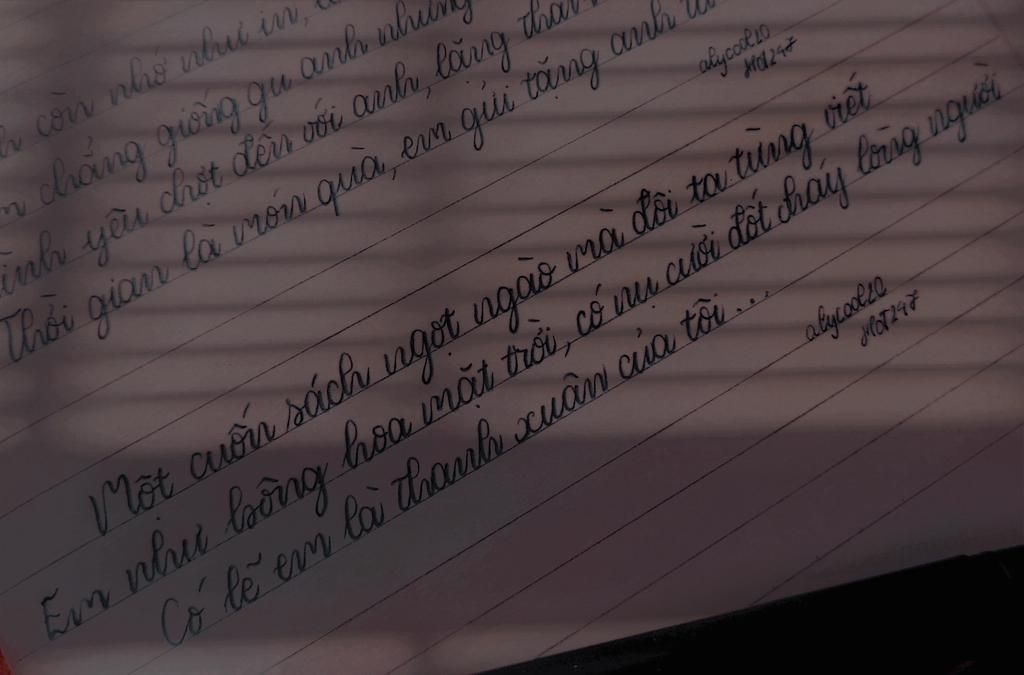 còn nhớ như in,
chẳng giống gu anh nhưng
yêu chợt đến với anh, lẵng
Thời gian là món quà, em gửi tặng anh
alycool20
Một cuốn sách ngọt ngào mà đôi ta từng viết
Em như bông hoa mặt trời, có nụ cười đốt cháy lòng người
Có lẽ em là thanh xuân của tôi...
alycool20